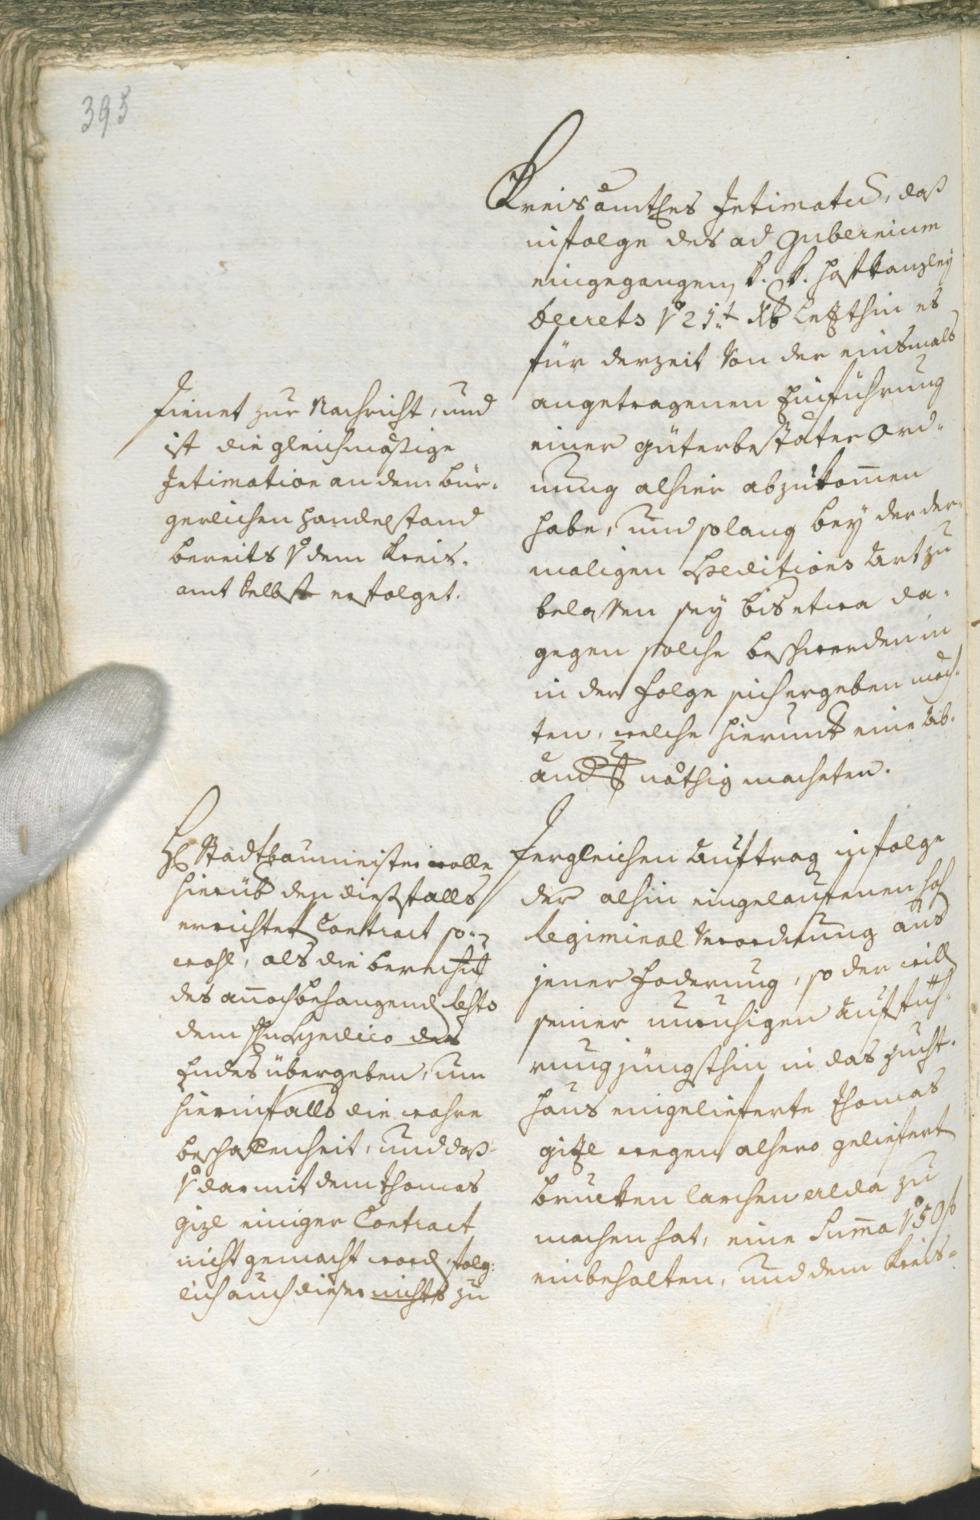 395
Kreisamtles Intimatum, daß
infolge des ad Gubernium
eingegangen k. k. Hofkanzley
Decrets v 21.t letzthin es
für derzeit von der einsmals
angetragenen Einführung
einer güterbestäter Ord-
nung alhier abzukom̄en
habe, und solang bey der der-
maligen Speditions Art zu
belassen sey bis etwa da-
gegen solche beschwerden in
in der Folge sich ergeben möch-
ten, welche hierinfs eine Ab-
ändg nöthig macheten.
Dienet zur Nachricht, und
ist die gleichmäßige
Intimation an dem bür-
gerlichen Handelstand
bereits v dem Kreis-
amt selbst erfolget.
Dergleichen Auftrag infolge
der alhie eingelaufenen hoh
Regiminal Verordnung aus
jener Foderung, so der
seiner unruhigen Auffüh-
rung jüngsthin in das zucht-
haus eingelieferte Thomas
gizl wegen alhero geliefert
brucken larchen zu
machen hat, eine Sum̄a v 50 f
einbehalten, und dem Kreis-
H Stadtbaumeister wolle
hierüb den dießfalls
errichtet Contract so-
wohl, als die berechn̄g
des annoch behangend rests
dem H Syndico des
Endes übergeben, um
hierinfalls die wahre
beschaffenheit, und daß
v dar mit dem Thomas
gizl einiger Contract
nicht gemacht word, folg-
lich auch dieser nichts zu